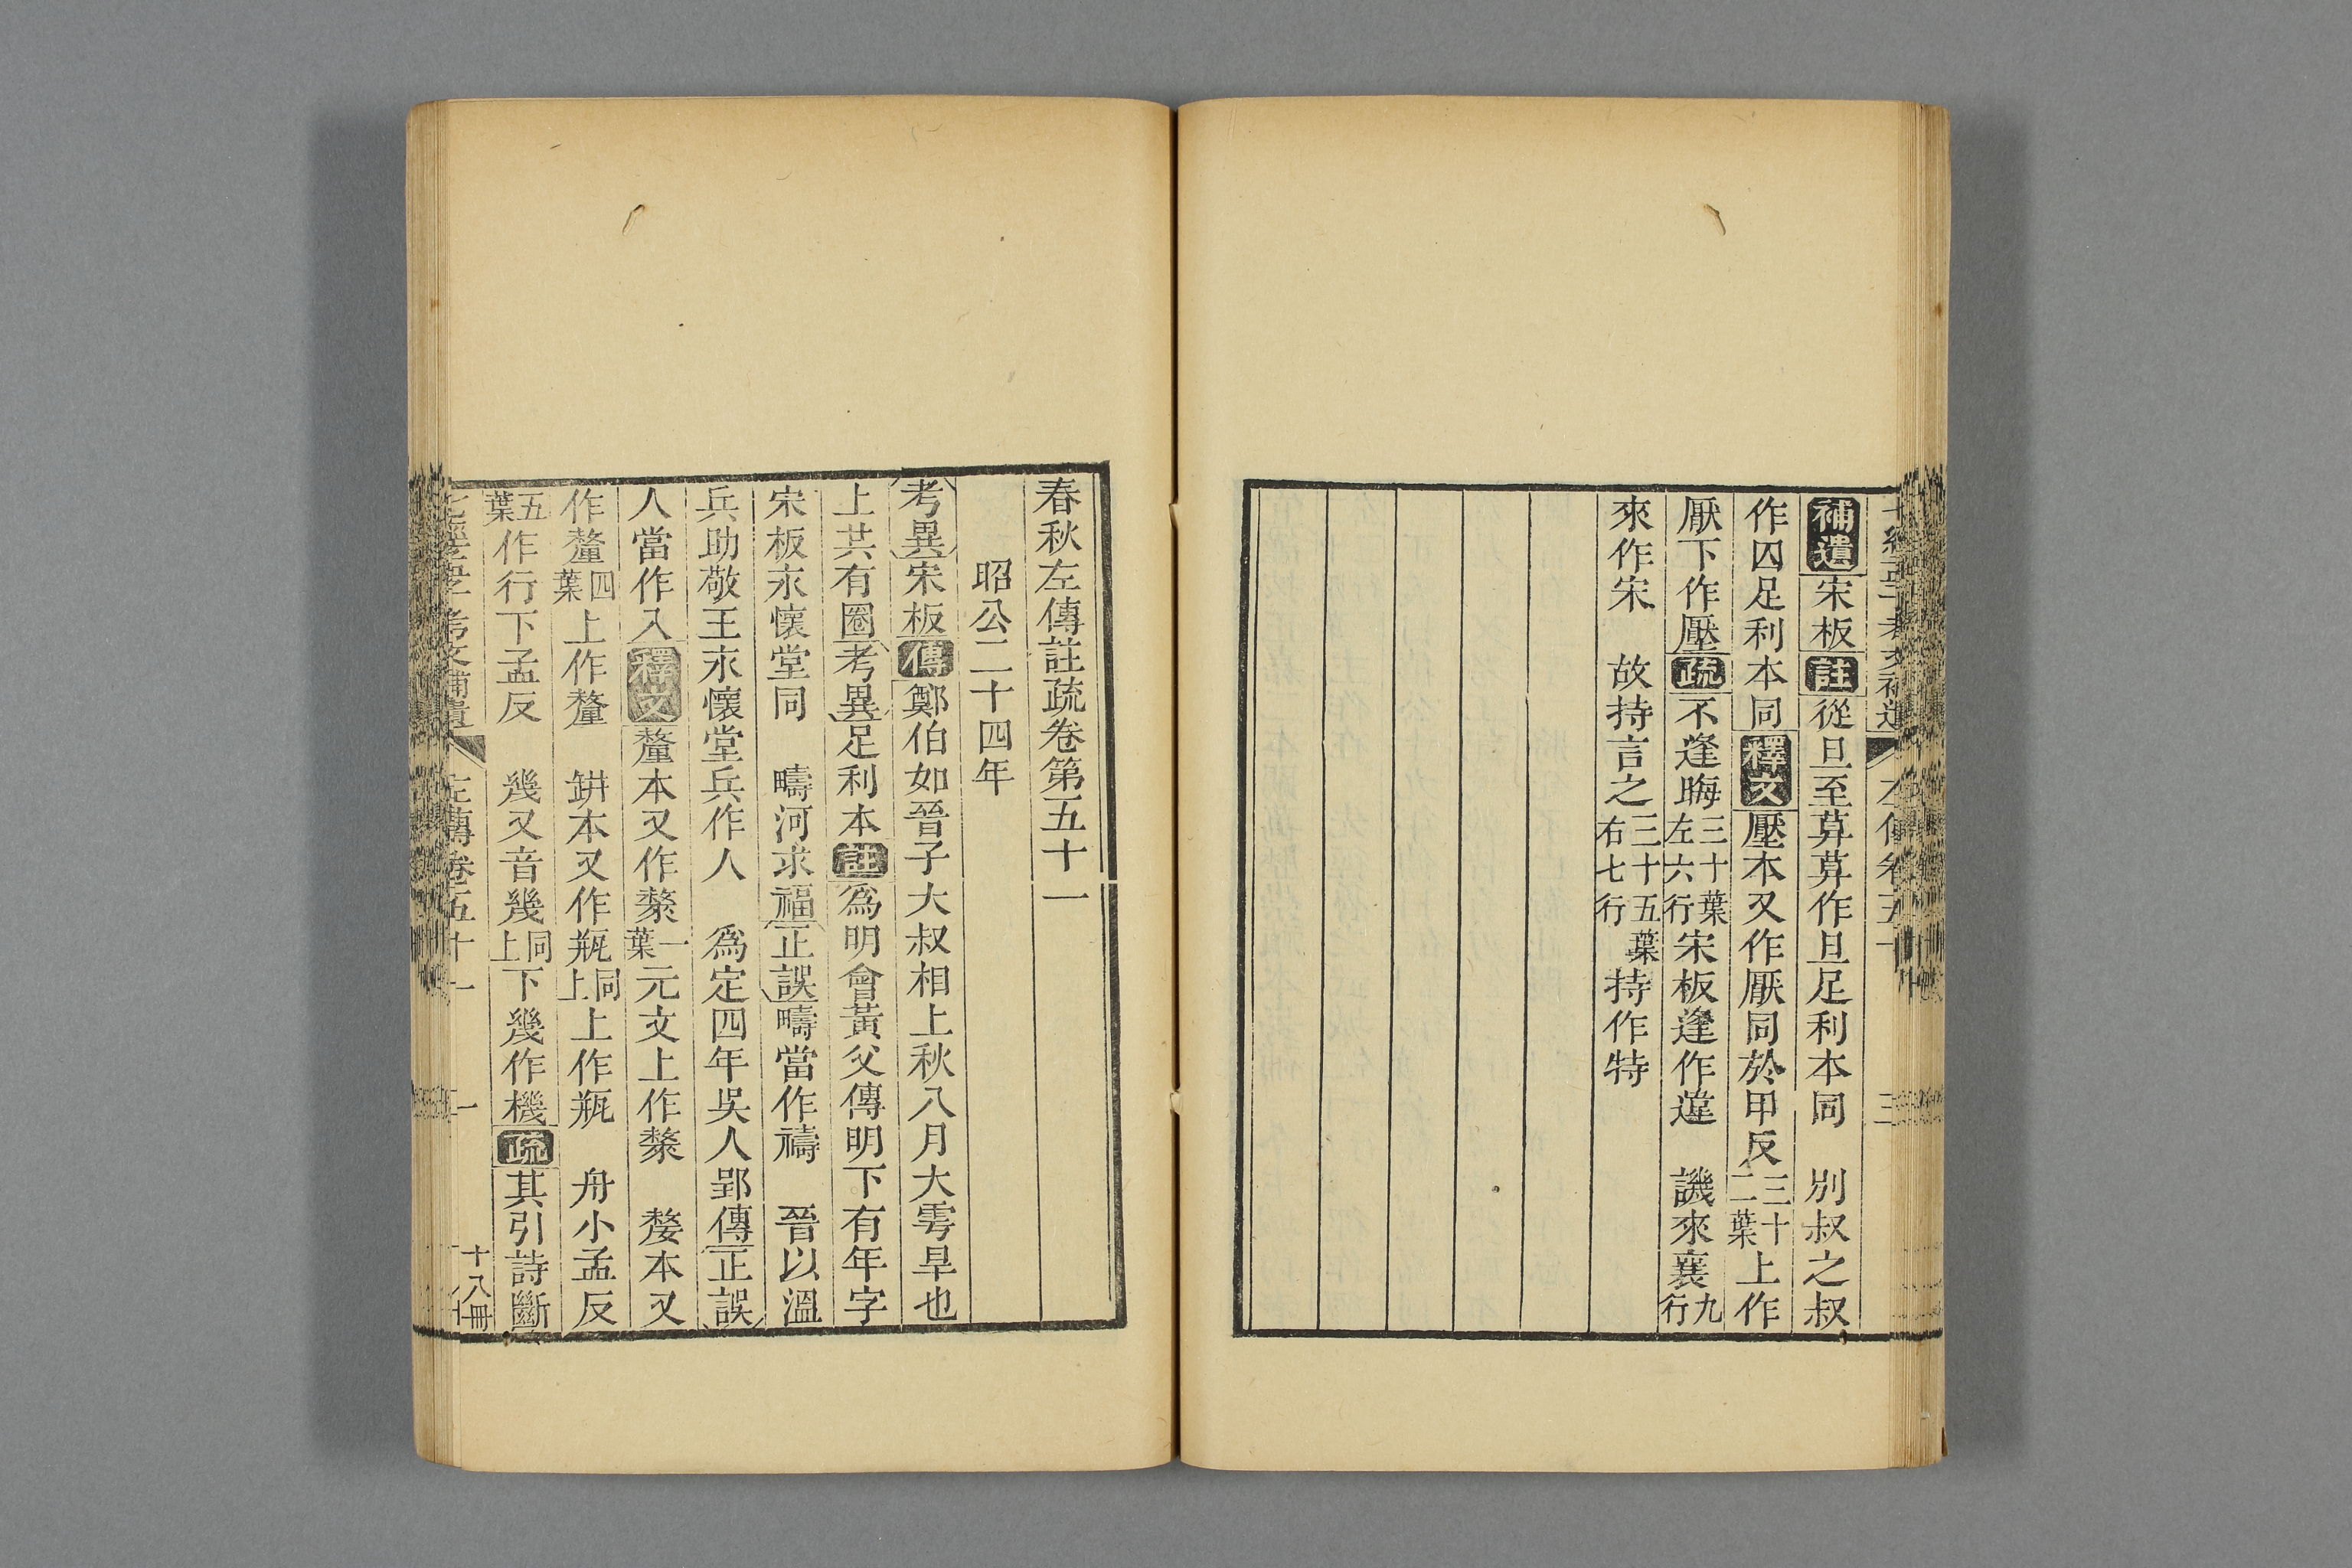 補遺宋板註從旦至莫莫作旦足利本同 別叔之叔
作囚足利本同釋文壓本又作厭同於甲反三十二葉上作
厭下作壓疏不逢晦三十葉左六行宋板逢作違 譏來襄九行
來作宋 故持言之三十五葉右七行持作特
春秋左傳註疏卷第五十一
昭公二十四年
考異宋板傳鄭伯如晉子大叔相上秋八月大雩旱也
上共有圈考異足利本註爲明會黃父傳明下有年字
宋板永懷堂同 疇河求福正誤疇當作禱 晉以溫
兵助敬王永懷堂兵作人 爲定四年吳人郢傳正誤
人當作入釋文釐本又作漦一葉元文上作漦 嫠本又
作釐四葉上作釐 缾本又作瓶同上上作瓶 舟小孟反
五葉作行下孟反 幾又音幾同上下幾作機疏其引詩斷
七經孟子考文補遺 左傳卷五十一 一 十八冊